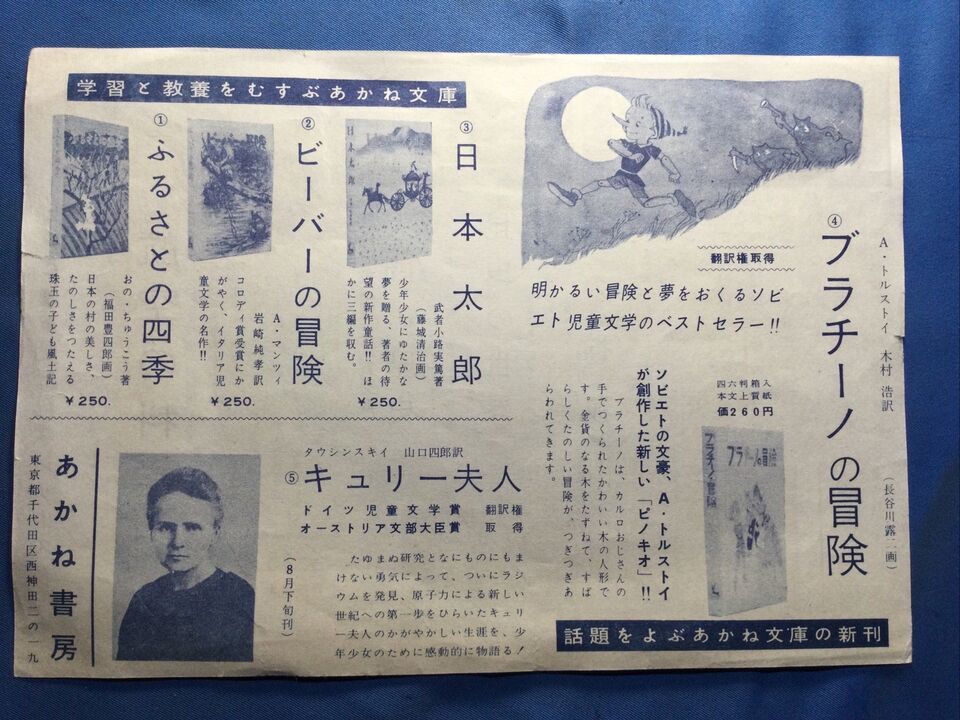 学習と教養をむすぶあかね文庫
④ブラチーノの冒険
A・トルストイ 木村 浩訳
(長谷川露二画)
翻訳権取得
明かるい冒険と夢をおくるソビ
エト児童文学のベストセラー!!
四六判箱入
本文上質紙
価260円
ソビエトの文豪、A・トルストイ
が創作した新しい「ピノキオ」!!
ブラチーノは、カルロおじさんの
手でつくられたかわいい木の人形で
す。金貨のなる木をたずねて、すば
らしくたのしい冒険が、つぎつぎあ
らわれてきます。
ブラチーノの冒険
ブラチーノの冒険
話題をよぶあかね文庫の新刊
③日本太郎
日本太郎
武者小路実篤著
(藤城清治画)
少年少女にゆたかな
夢を贈る、著者の待
望の新作童話!! ほ
かに三編を収む。
¥250.
②ビーバーの冒険
A・マンツィ
岩崎純孝訳
コロディ賞受賞にか
がやく、イタリア児
童文学の名作!!
¥250.
①ふるさとの四季
おの・ちゅうこう著
(福田豊四郎画)
日本の村の美しさ、
たのしさをつたえる
珠玉の子ども風土記
¥250.
タウシンスキイ 山口四郎訳
⑤キュリー夫人
ドイツ児童文学賞 翻訳権
オーストリア文部大臣賞 取得
たゆまぬ研究となにものにもま
けない勇気によって、ついにラジ
ウムを発見、原子力による新しい
世紀への第一歩をひらいたキュリ
ー夫人のかがやかしい生涯を、少
年少女のために感動的に物語る!
(8月下旬刊)
あかね書房
東京都千代田区西神田二の一九